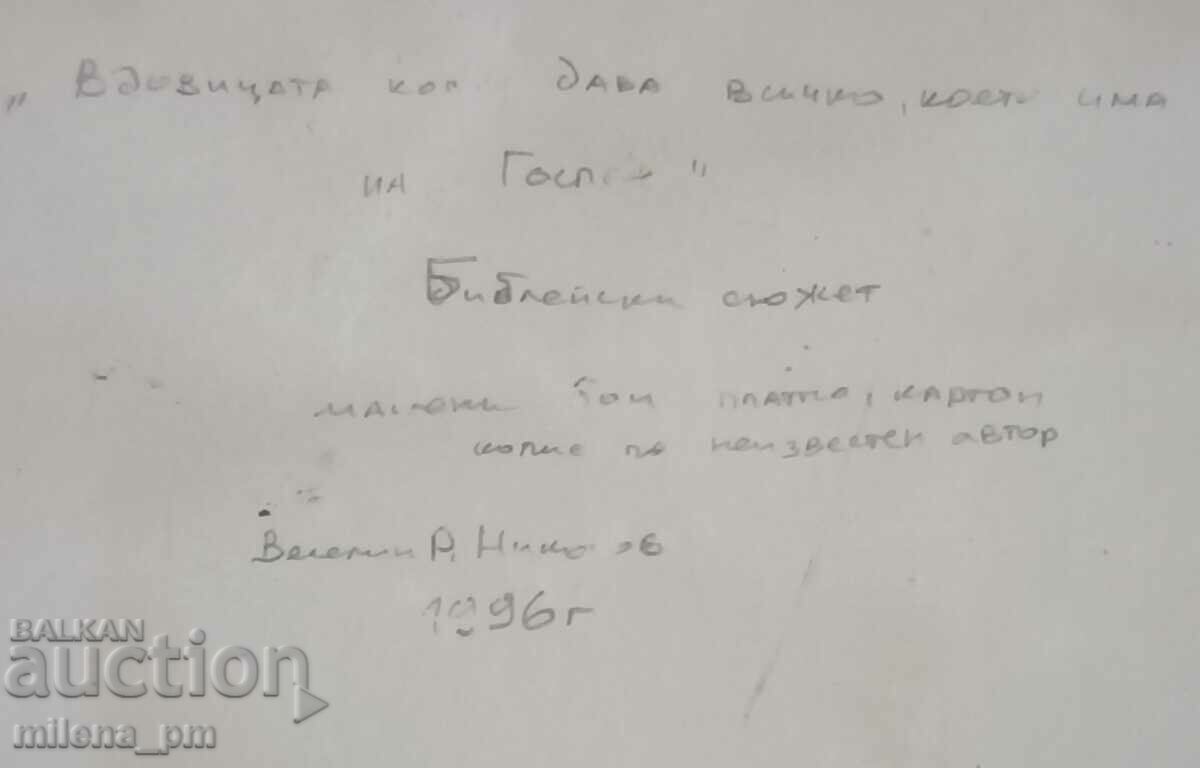 „ Вдовицата коя дава всичко, което има
на Господ "
Библейски сюжет
маслени бои платно, картон
копие по неизвестен автор
Р. Николов
1996г
BALKAN
auction
milena_pm